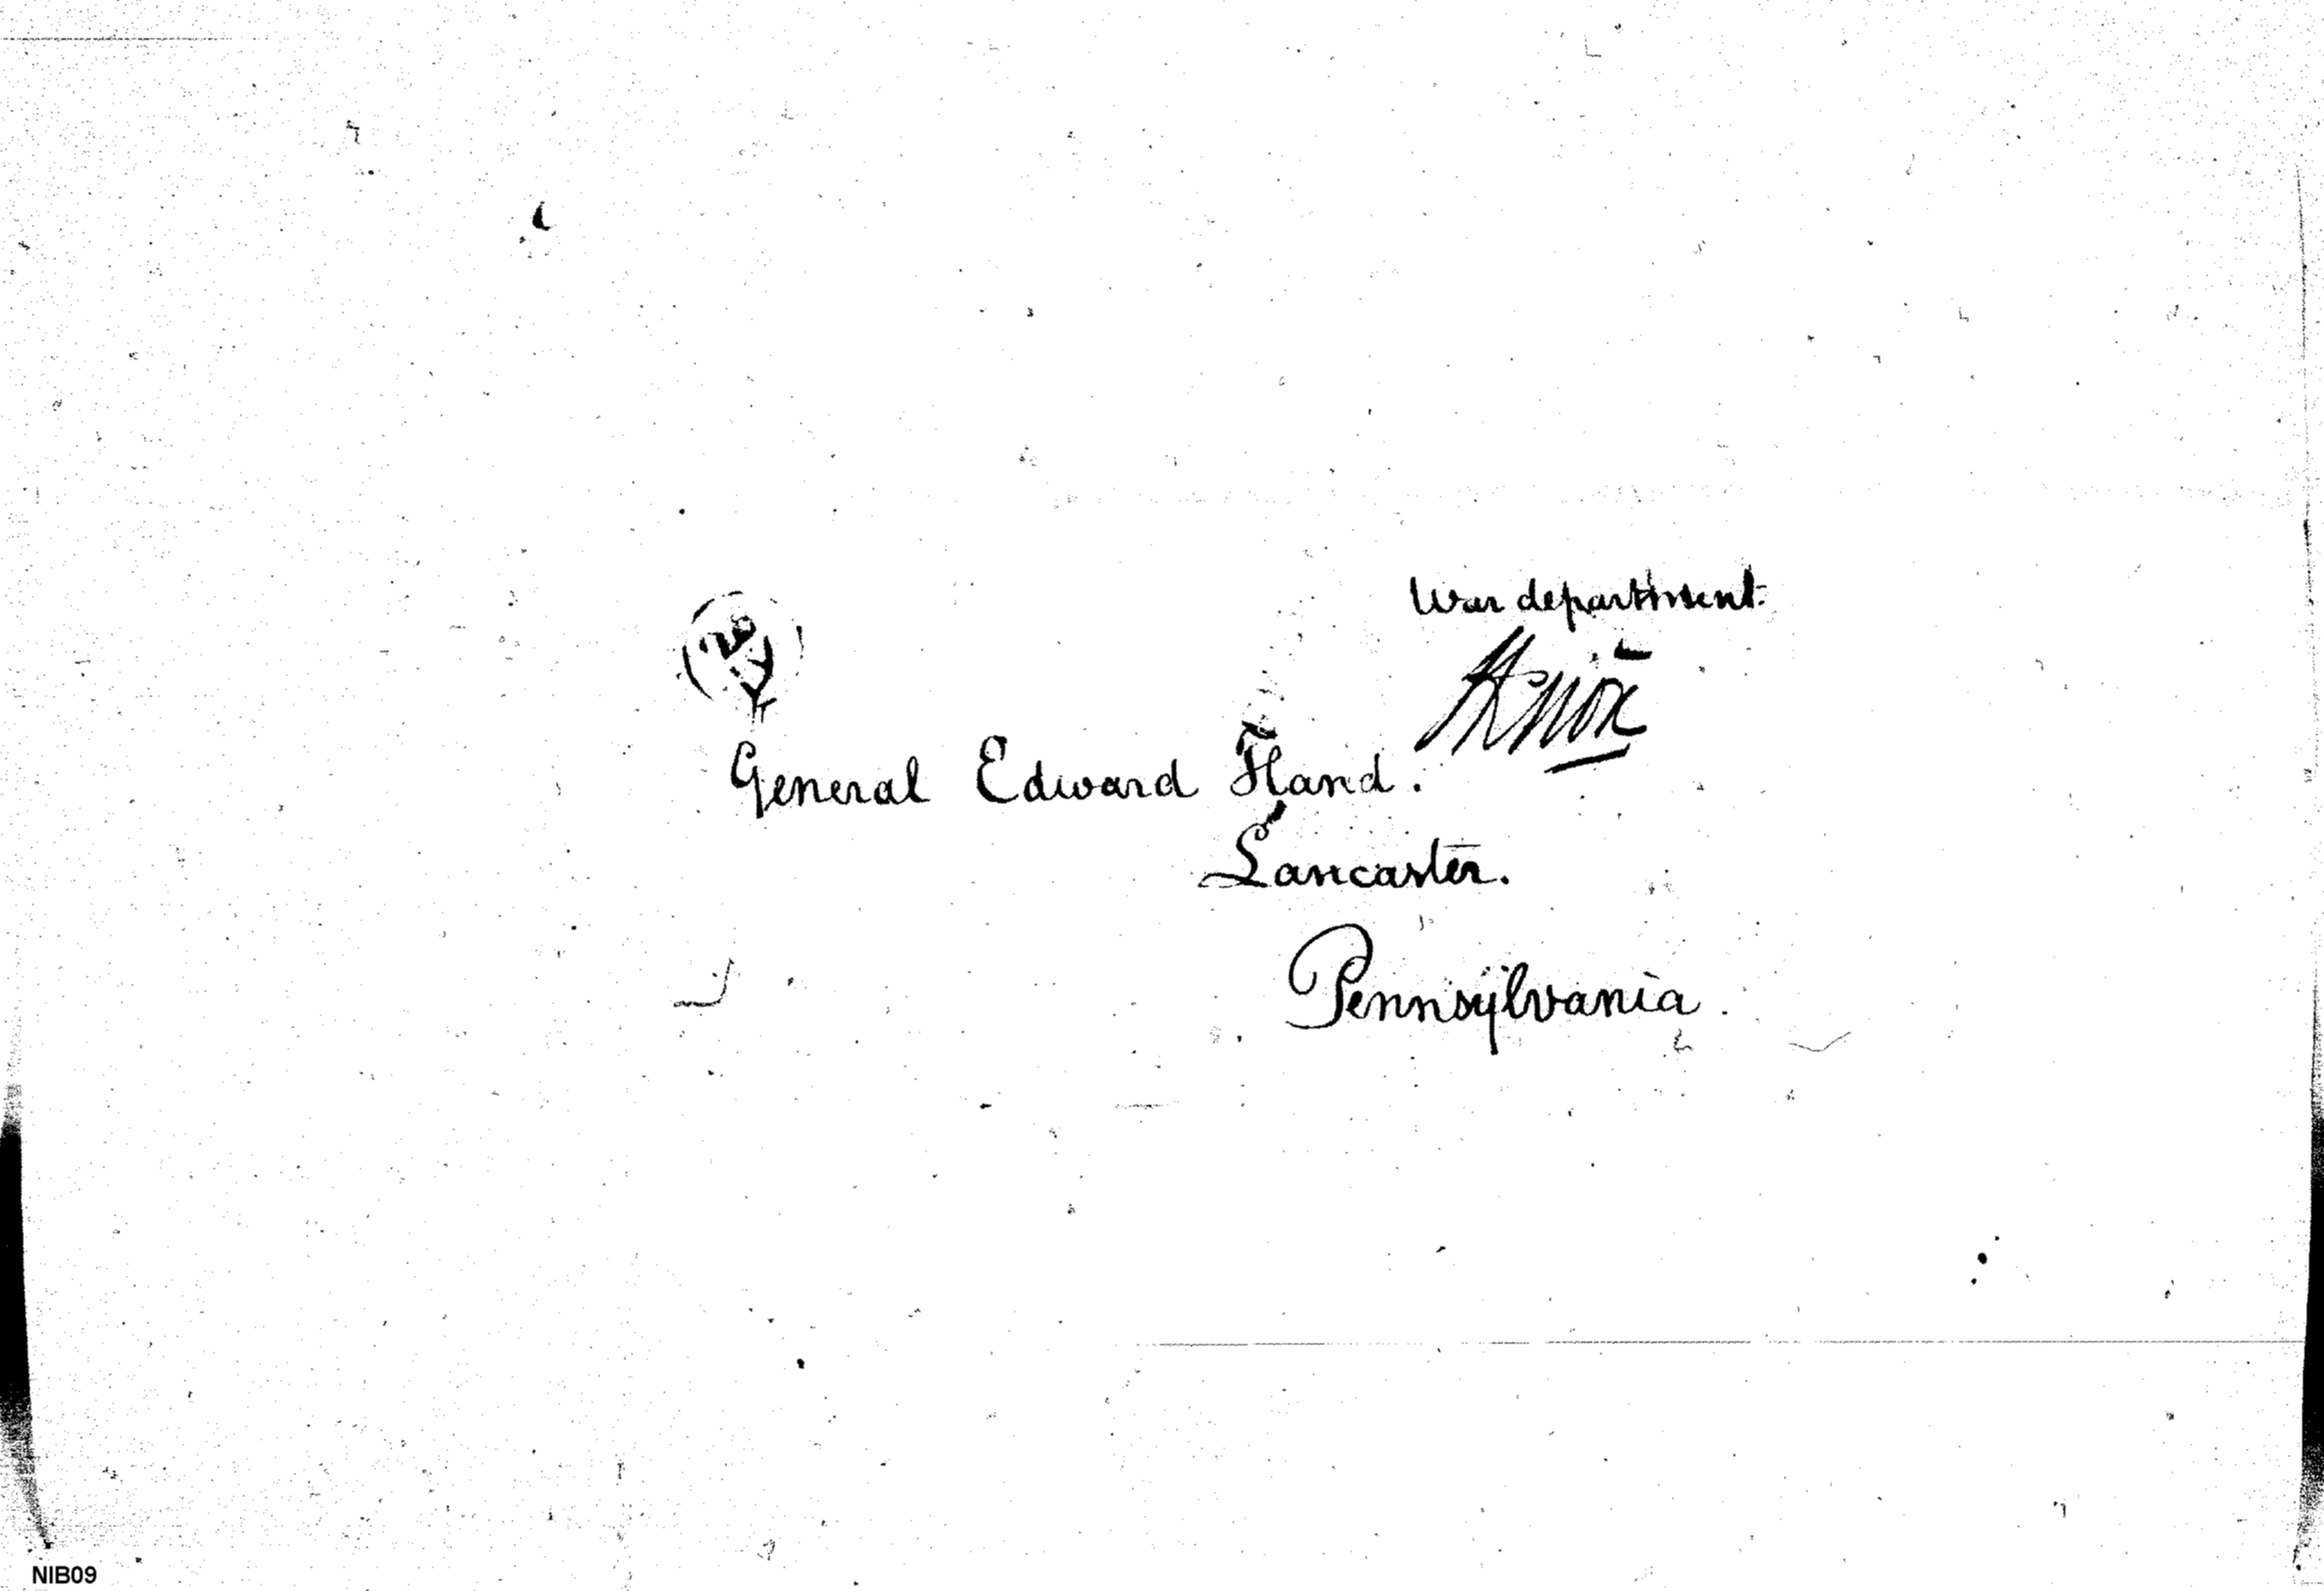 War department.
HKnox
General Edward Hand.
Lancaster.
Pennsylvania.
NIB09